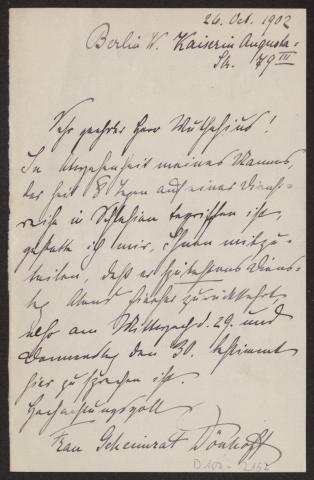 26. Oct. 1902
Berlin W. Kaiserin Augusta-
Str. 79 III
Sehr geehrter Herr Muthesius!
In Abwesenheit meines Mannes,
der seit 8 Tagen auf einer Dienst-
reise in Schlesien begriffen ist,
gestatte ich mir, Ihnen mitzu-
teilen, daß er spätestens Diens-
tag Abend hierher zurückkehrt,
also am Mittwoch d. 29. und
Donnerstag den 30. bestimmt
hier zu sprechen ist.
Hochachtungsvoll
Frau Geheimrat Dönhoff
D 102-2162